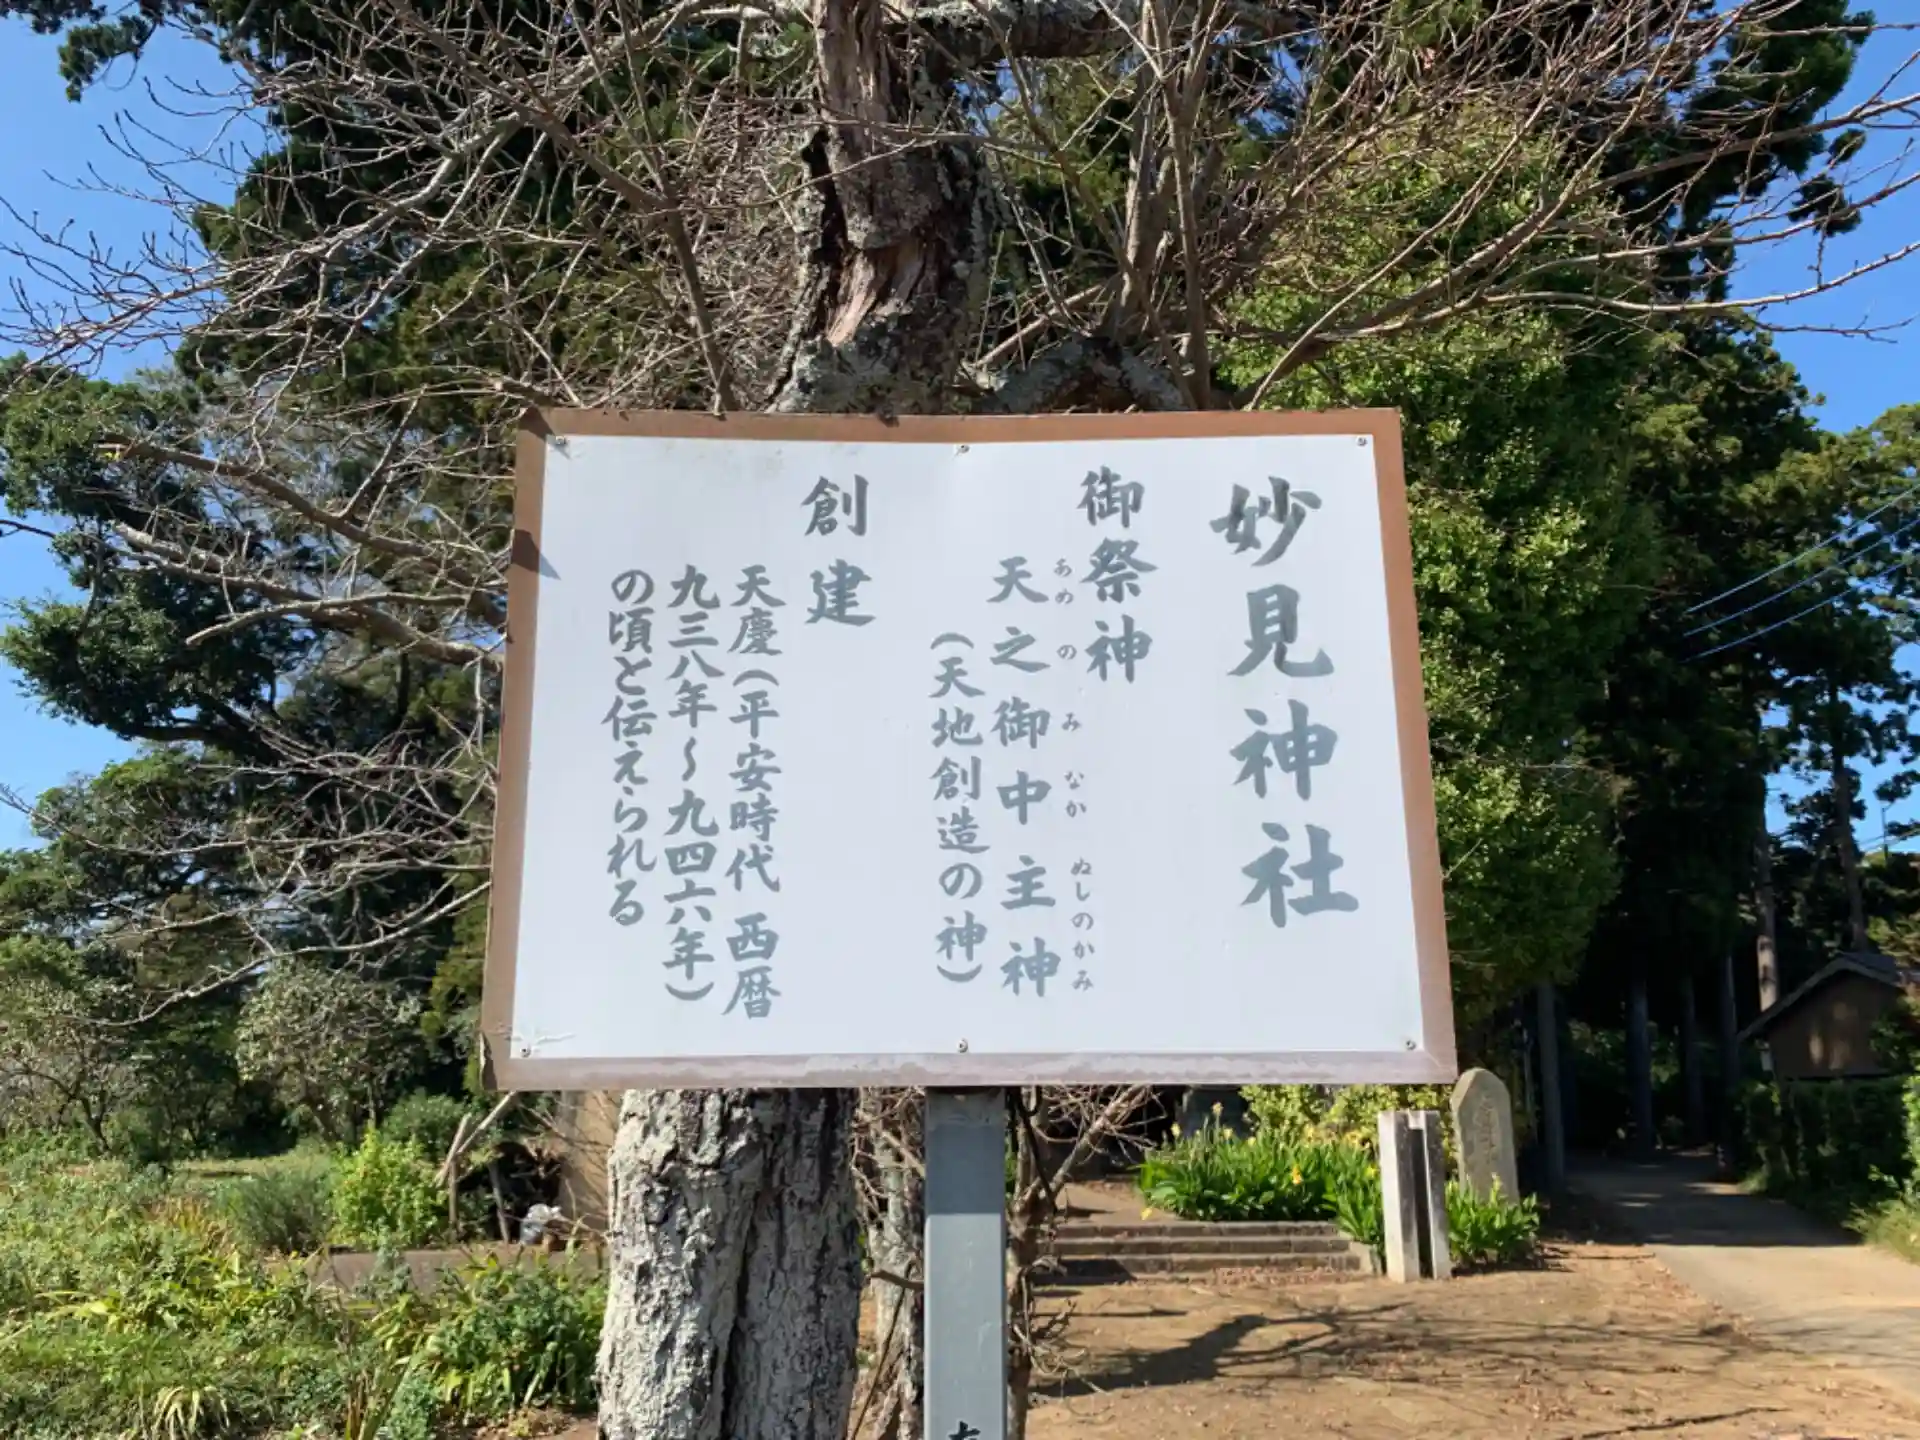 妙見神社
御祭神
あめのみなかぬしのかみ
天之御中主神
(天地創造の神)
創建
天慶(平安時代 西暦
九三八年~九四六年)
の頃と伝えられる